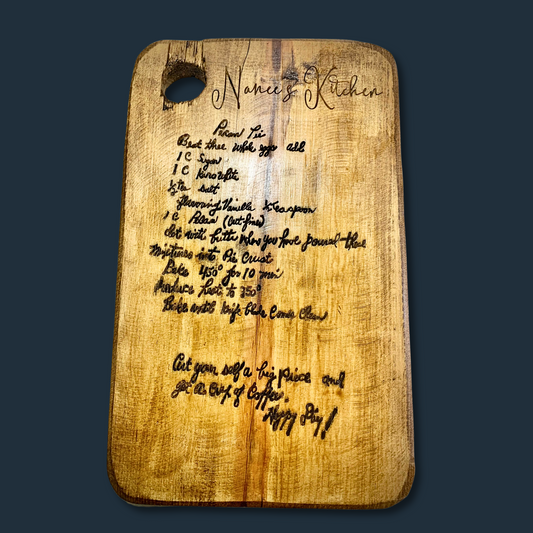 Nanee's Kitchen
Pecan Pie
Beat three whole eggs add
1 C Sugar
1 C Karo
½ tea salt
flavoring Vanilla ½ teaspoon
1 C Pecan (cut fine)
dot with butter when you have poured these
mixtures into Pie Crust
Bake 450° for 10 min
Reduce heat to 350°
Bake until knife blade Comes Clean
Cut your self a big piece and
get a Cup of Coffee.
Happy Day!